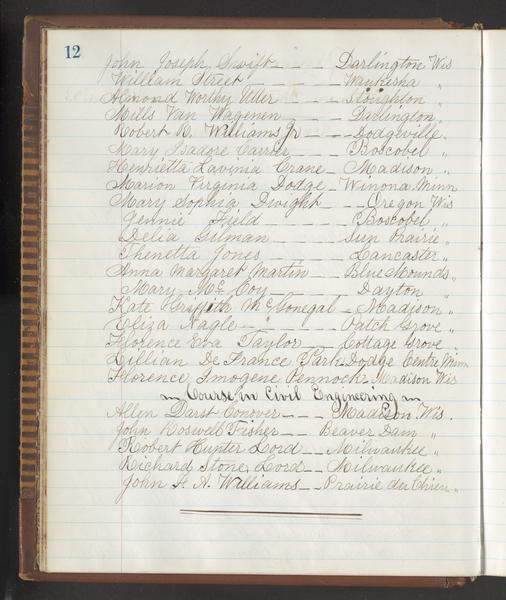 12
John Joseph Swift — — Darlington Wis
William Street — — — — Waukesha "
Almond Worthy Utter — — — Stoughton "
Mills Van Wagenen — — — Darlington "
Robert R. Williams Jr — — Dodgeville "
Mary Isadore Carrier — — — Boscobel "
Henrietta Lavinia Crane — Madison "
Marion Virginia Dodge — Winona Minn
Mary Sophia Dwight — — Oregon Wis
Jennie Field — — — — Boscobel "
Delia Gilman — — — — Sun Prairie "
Thenetta Jones — — — — Lancaster "
Anna Margaret Martin — Blue Mounds "
Mary McCoy — — — — Dayton "
Kate Griffith McGonegal — Madison "
Eliza Nagle — — — — Patch Grove "
Florence Eva Taylor — — Cottage Grove "
Lillian De France Park Dodge Centre Minn
Florence Imogene Pennock Madison Wis
Course in Civil Engineering
Allen Darst Conover — — — Madison Wis.
John Roswell Fisher — — Beaver Dam "
Robert Hunter Lord — — Milwaukee "
Richard Stone Lord — — Milwaukee "
John A. Williams — — Prairie du Chien "